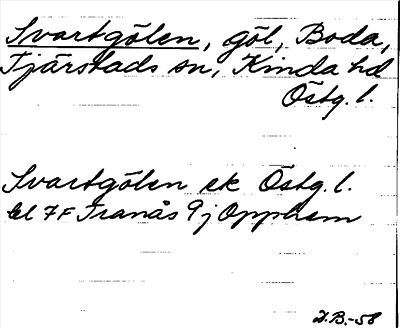 Svartgölen, göl, Boda,
Tjärstads sn, Kinda hd
Östg. l.
Svartgölen ek Östg. l.
bl 7F Tranås 9j Opphem
D.B.-58